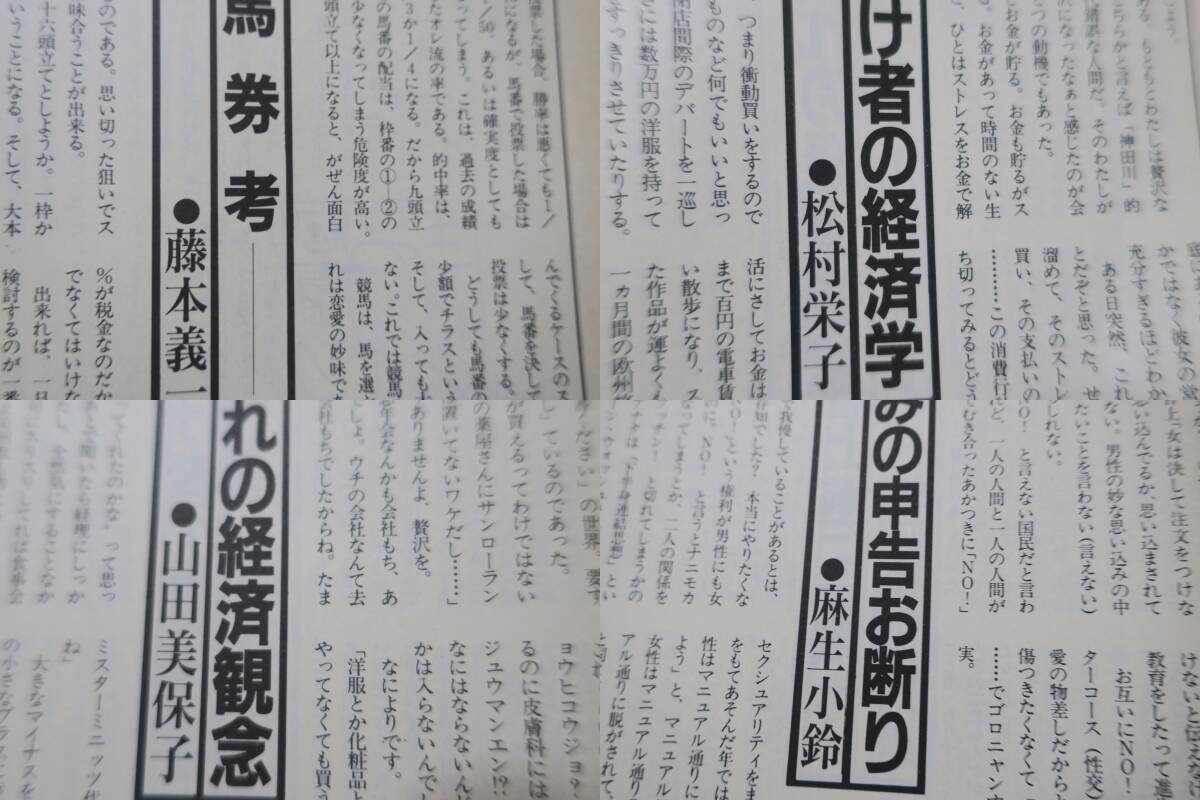 馬券考
●藤本義一
投票した場合、勝率は悪くても1/
/50、あるいは確実度としても
になるが、馬番で投票した場合は
ってしまう。これは、過去の成績
たオレ流の率である。的中率は、
3か1/4になる。だから九頭立
の馬番の配当は、枠番の①―②の
少なくなってしまう危険度が高い。
頭立て以上になると、がぜん面白
のである。思い切った狙いでス
味合うことが出来る。
十六頭立てとしようか。一枠か
いうことになる。そして、大本
んでくるケースのス
して、馬番を決して
投票は少なくする。
どうしても馬番の
少額でチラスという
そして、入っても十
ない。これでは競馬
競馬は、馬を選ぶ
れは恋愛の妙味であ
%が税金なのだか
でなくてはいけな
出来れば、一日
検討するのが一番
け者の経済学
●松村栄子
もともとわたしは贅沢な
ちらかと言えば「神田川」的
な人間だ。そのわたしが
になったなぁと感じたのが会
つの動機でもあった。
お金が貯る。お金も貯るがス
お金があって時間のない生
、ひとはストレスをお金で解
つまり衝動買いをするので
ものなど何でもいいと思っ
閉店間際のデパートを一巡し
さには数万円の洋服を持って
すっきりさせていたりする。
かではなく彼女の堂
充分すぎるほどわか
ある日突然、これ
とだぞと思った。せ
溜めて、そのストレ
買い、その支払いの
………この消費行
ち切ってみるとどう
活にさしてお金は
まで百円の電車賃
い散歩になり、ス
た作品が運よく
一ヵ月間の欧州
れの経済観念
●山田美保子
ください」の世界。要す
しているのであった。
が買えるってわけではない
の薬屋さんにサンローラン
置いてないワケだし……」
ありませんよ、贅沢を。
年会なんかも会社もち、あ
しょ、ウチの会社なんて去
社もちでしたからね。たま
てくれたのかな〟って思っ
と聞いたら経理にしっか
ヨウヒコウジョ?
るのに皮膚科には
ジュウマンエン!?
なにはならないんだ
かは入らないんで
なによりです。
「洋服とか化粧品と
やってなくても買う
ミスターミニッツ代
ね」
大きなマイナスを
の小さなプラスと
みの申告お断り
●麻生小鈴
上「女は決して注文をつけな
思い込んでるか、思い込まされて
ない。男性の妙な思い込みの中
たいことを言わない(言えない)
しれない。
NO!と言えない国民だと言わ
ど、一人の人間と一人の人間が
むき合ったあかつきにNO!」
で我慢していることがあるとは、
知でした? 本当にやりたくな
に、NO!という権利が男性にも女
NO!と言うとナニモカ
なってしまうとか、二人の関係を
と切れてしまうかの
けないと伝えな
教育をしたって進
お互いにNO!
ターコース(性交)
愛の物差しだから
傷つきたくなくて
……でゴロニャン
実。
セクシュアリティをま
をもてあそんだ年では
性はマニュアル通りに
よう」と、マニュアル
女性はマニュアル通り
アル通りに脱がされて、